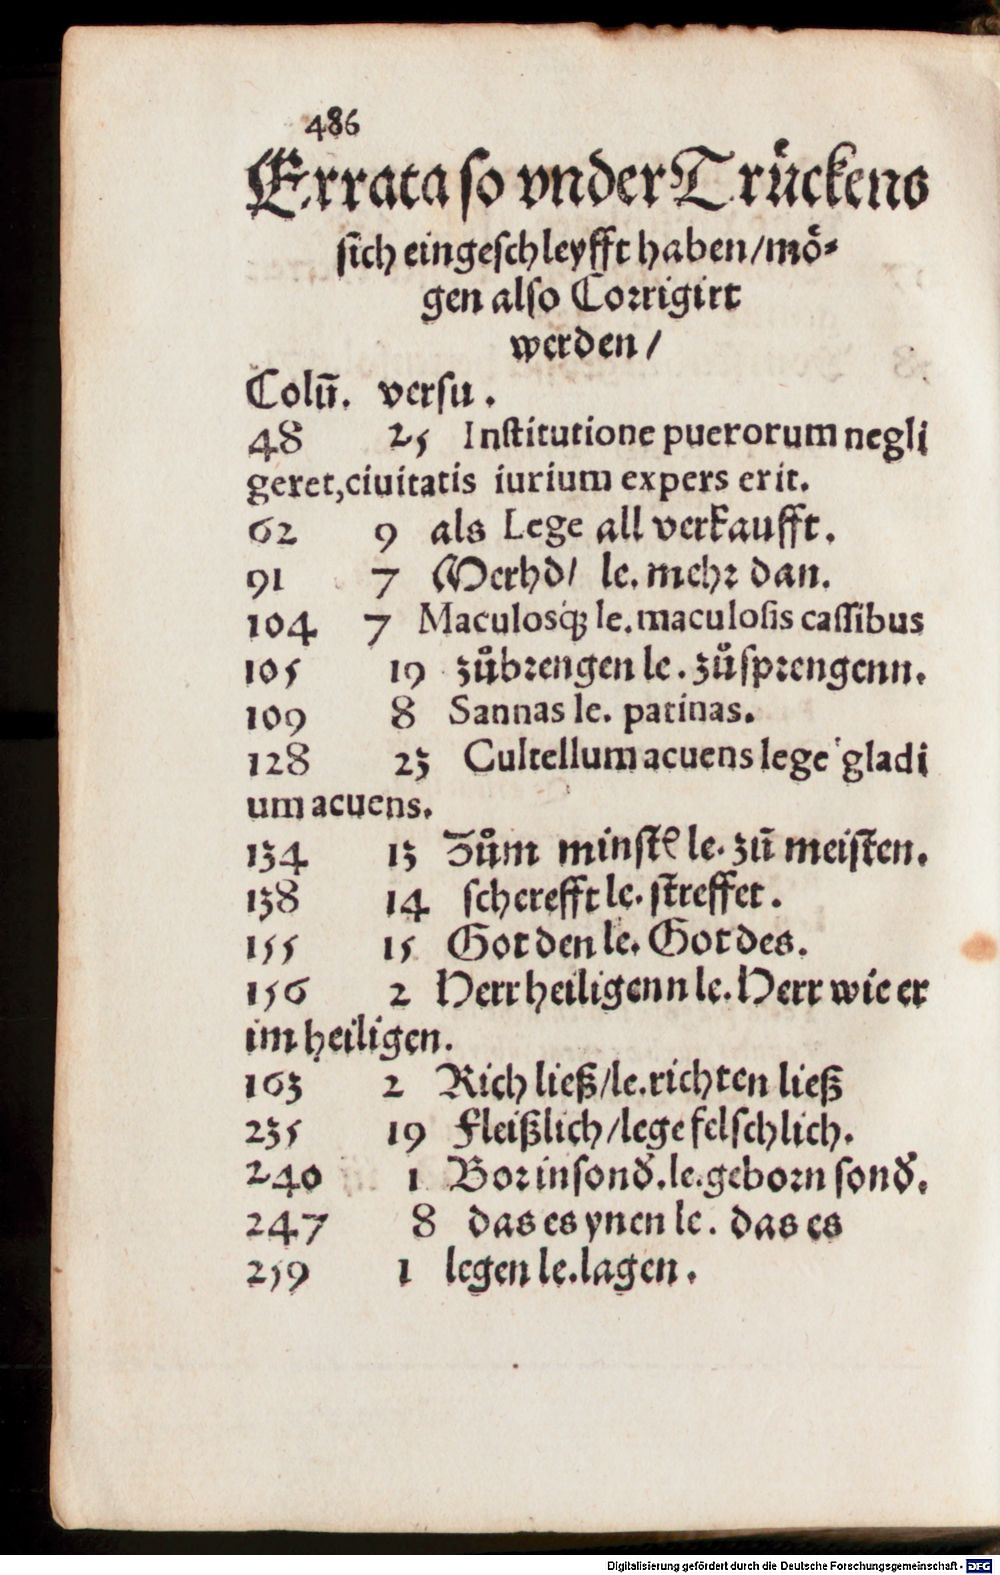 486
Errata so vnder Trückens
sich eingeschleyfft haben/mö⸗
gen also Corrigirt
werden/
Colū. versu.
48 25 Institutione puerorum negli
geret,ciuitatis iurium expers erit.
62 9 als Lege all verkaufft.
91 7 Werhd/ le. mehr dan.
104 7 Maculosq; le. maculosis cassibus
105 19 zůbrengen le. zůsprengenn.
109 8 Sannas le. patinas.
128 23 Cultellum acuens lege gladi
um acuens.
134 13 Zům minstē le. zū meisten.
138 14 scherefft le. streffet.
155 15 Got den le. Got des.
156 2 Herr heiligenn le. Herr wie er
im heiligen.
163 2 Rich ließ/le. richten ließ
235 19 Fleißlich/lege felschlich.
240 1 Bor in sond̕. le. geborn sond̕.
247 8 das es ynen le. das es
259 1 legen le. lagen.
Digitalisierung gefördert durch die Deutsche Forschungsgemeinschaft - DFG